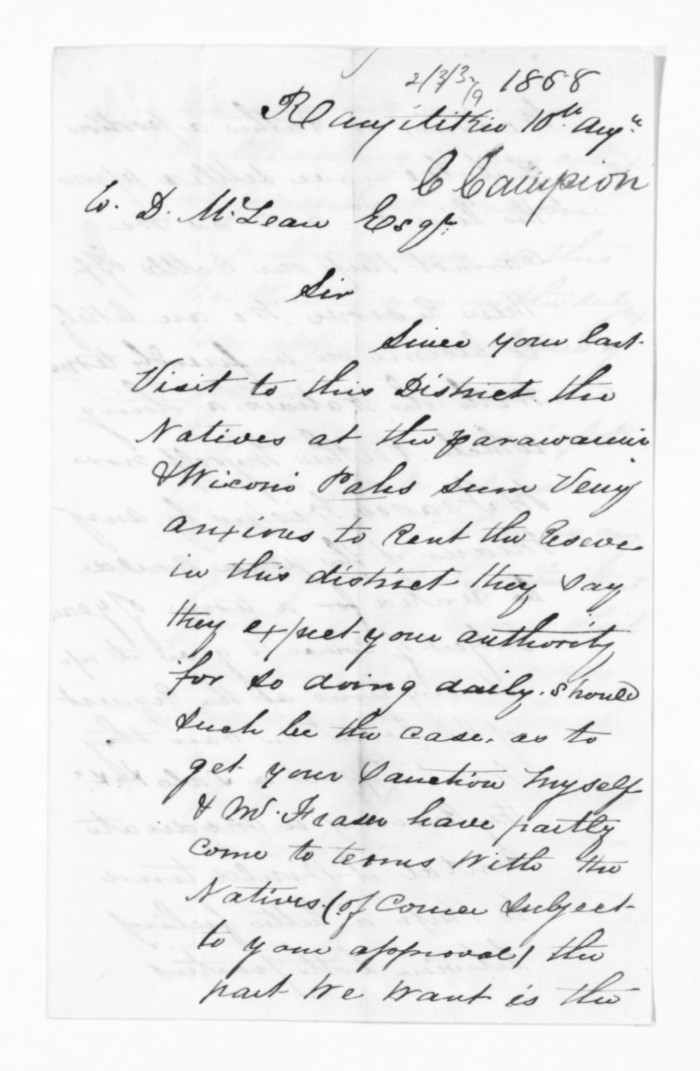 2/3/3/9 1868
Rangitikei 10th Augt.
C Campion
To. D. McLean Esqr.
Sir
Since your last
Visit to this District the
Natives at the parawanui
& Wicori Pahs Seem Very
anxious to rent the Reserve
in this district they Say
they expect your authority
for so doing daily. Should
Such be the case. as to
get your Sanction Myself
& Mr. Fraser have partly
come to terms With the
Natives. (of Course Subject
to your approval) the
part We Want is the